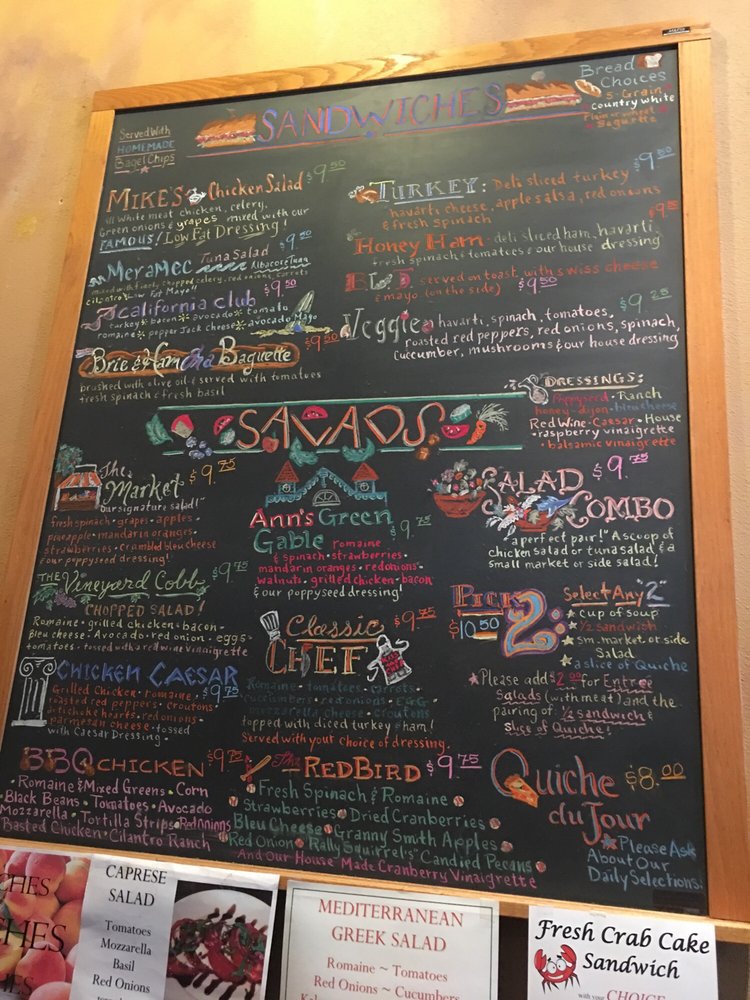 SANDWICHES
Served With
HOMEMADE
Bagel Chips
Bread
Choices
5-Grain
Country white
Plain or wheat
Baguette
MIKE'S Chicken Salad $9.50
All White meat chicken, celery,
Green onions & grapes mixed with our
FAMOUS / Low Fat Dressing!
MERAMEC Tuna Salad $9.50
Albacore Tuna
mixed with finely chopped celery, red onions, carrots
cilantro & Low Fat Mayo!!
California Club $9.50
turkey bacon avocado tomato
romaine pepper Jack cheese avocado Mayo
Brie & Ham on a Baguette $9.50
brushed with olive oil & served with tomatoes
fresh spinach & fresh basil
TURKEY: Deli sliced turkey $9.50
havarti cheese, apple salsa, red onions
& fresh spinach
$9.50
Honey Ham - deli sliced ham, havarti,
fresh spinach, tomatoes & our house dressing
BLT served on toast with swiss cheese
& mayo (on the side) $9.50
$9.25
Veggie havarti, spinach, tomatoes,
roasted red peppers, red onions, spinach,
cucumber, mushrooms & our house dressing
SALADS
DRESSINGS:
Poppyseed · Ranch
honey-dijon · bleu cheese
Red Wine · Caesar · House
· raspberry vinaigrette
· balsamic vinaigrette
The Market $9.75
"our signature salad!"
fresh spinach · grapes · apples ·
pineapple · mandarin oranges ·
strawberries · crumbled bleu cheese
& our poppyseed dressing!
THE Vineyard Cobb $9.75
CHOPPED SALAD!
Romaine · grilled chicken · bacon ·
Bleu cheese · Avocado · red onion · eggs ·
tomatoes · tossed with a red wine vinaigrette
CHICKEN CAESAR
Grilled Chicken · romaine · $9.75
roasted red peppers · croutons
artichoke hearts · red onions ·
parmesan cheese · tossed
with Caesar Dressing ·
BBQ CHICKEN $9.75
· Romaine & Mixed Greens · Corn
· Black Beans · Tomatoes · Avocado
Mozzarella · Tortilla Strips · Red Onions
Basted Chicken · Cilantro Ranch
Ann's Green
Gable $9.75
romaine
& spinach · strawberries ·
mandarin oranges · red onions ·
walnuts · grilled chicken · bacon
& our poppyseed dressing!
Classic $9.75
CHEF
Romaine · tomatoes · carrots ·
cucumbers · red onions · Egg ·
mozzarella cheese · croutons
topped with diced turkey & ham!
Served with your choice of dressing.
The REDBIRD $9.75
Fresh Spinach & Romaine
Strawberries Dried Cranberries
Bleu Cheese Granny Smith Apples
Red Onion Rally Squirrel's "Candied Pecans"
And Our House Made Cranberry Vinaigrette
SALAD $9.75
COMBO
"a perfect pair!" A scoop of
chicken salad or tuna salad & a
small market or side salad!
PICK 2:
$10.50
Select Any "2"
Cup of soup
1/2 sandwich
sm. market or side
Salad
a slice of Quiche
Please add $2.00 for Entree
Salads (with meat) and the
pairing of 1/2 sandwich &
Slice of Quiche!
Quiche $8.00
du Jour
Please Ask
About Our
Daily Selections!
CHES
CHES
CHES
CAPRESE
SALAD
Tomatoes
Mozzarella
Basil
Red Onions
MEDITERRANEAN
GREEK SALAD
Romaine ~ Tomatoes
Red Onions ~ Cucumbers
Fresh Crab Cake
Sandwich
with your CHOICE